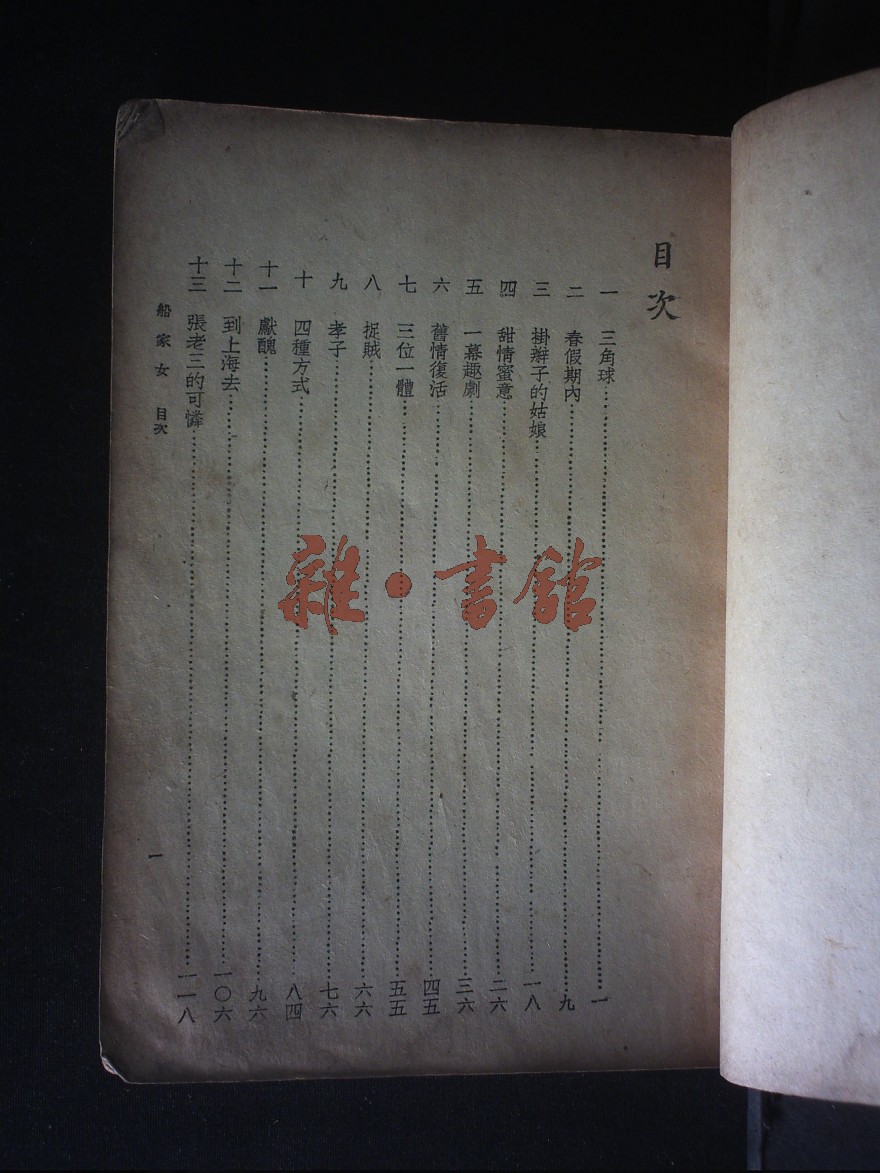 目次
一 三角球……一
二 春假期內……九
三 掛辮子的姑娘……一八
四 甜情蜜意……二六
五 一幕趣劇……三六
六 舊情復活……四五
七 三位一體……五五
八 捉賊……六六
九 孝子……七六
十 四種方式……八四
十一 獻醜……九六
十二 到上海去……一〇六
十三 張老三的可憐……一一八
船家女 目次
一
雜·書館